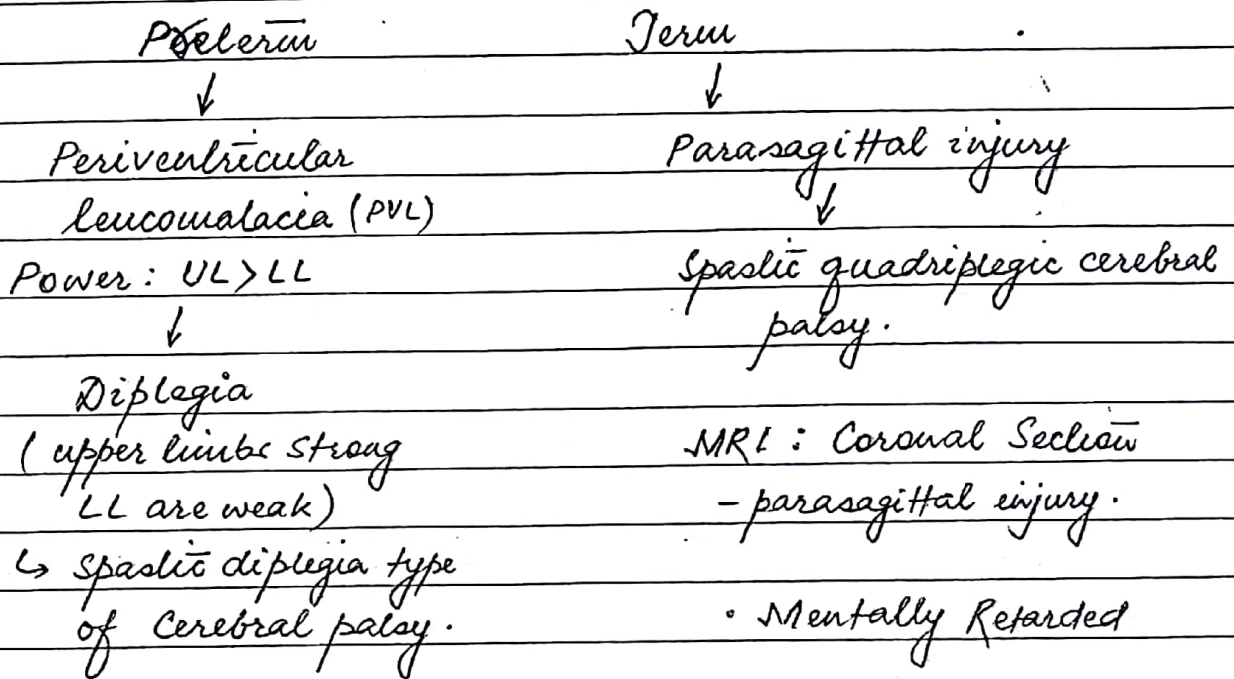 Preterm
↓
Periventricular
leucomalacia (PVL)
Power: UL>LL
↓
Diplegia
(upper limbs strong
LL are weak)
↳ Spastic diplegia type
of Cerebral palsy.
Term
↓
Parasagittal injury
↓
Spastic quadriplegic cerebral
palsy.
MRI : Coronal Section
- parasagittal injury.
• Mentally Retarded